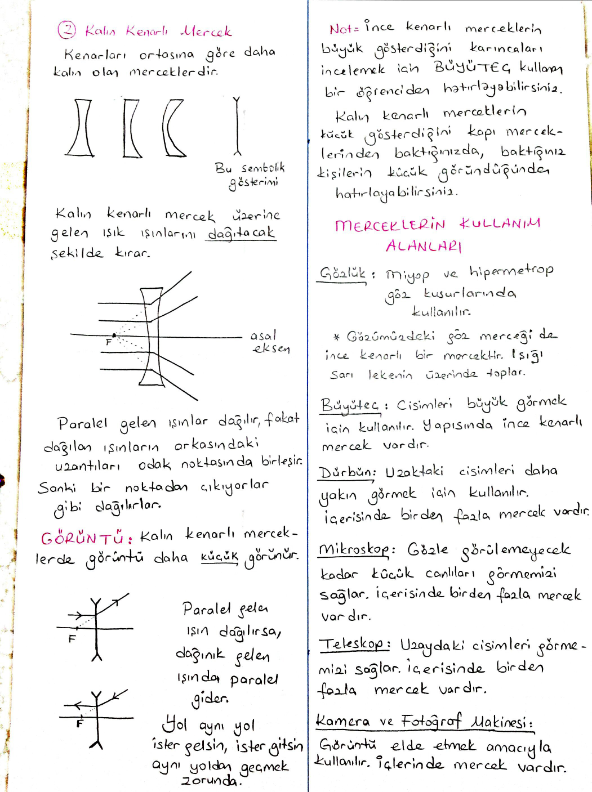 ② Kalın Kenarlı Mercek
Kenarları ortasına göre daha
kalın olan merceklerdir.
Bu sembolik
gösterimi
Kalın kenarlı mercek üzerine
gelen ışık ışınlarını dağıtacak
şekilde kırar.
F
asal
eksen
Paralel gelen ışınlar dağılır, fakat
dağılan ışınların arkasındaki
uzantıları odak noktasında birleşir.
Sanki bir noktadan çıkıyorlar
gibi dağılırlar.
GÖRÜNTÜ: Kalın kenarlı mercek-
lerde görüntü daha küçük görünür.
F
Paralel gelen
ışın dağılırsa,
dağınık gelen
ışında paralel
gider.
F
Yol aynı yol
ister gelsin, ister gitsin
aynı yoldan geçmek
zorunda.
Not= İnce kenarlı merceklerin
büyük gösterdiğini karıncaları
incelemek için BÜYÜTEÇ kullanan
bir öğrenciden hatırlayabilirsiniz.
Kalın kenarlı merceklerin
küçük gösterdiğini kapı mercek-
lerinden baktığınızda, baktığınız
kişilerin küçük göründüğünden
hatırlayabilirsiniz.
MERCEKLERİN KULLANIM
ALANLARI
Gözlük: Miyop ve hipermetrop
göz kusurlarında
kullanılır.
* Gözümüzdeki göz merceği de
ince kenarlı bir mercektir. Işığı
sarı lekenin üzerinde toplar.
Büyüteç: Cisimleri büyük görmek
için kullanılır. Yapısında ince kenarlı
mercek vardır.
Dürbün: Uzaktaki cisimleri daha
yakın görmek için kullanılır.
İçerisinde birden fazla mercek vardır.
Mikroskop: Gözle görülemeyecek
kadar küçük canlıları görmemizi
sağlar. İçerisinde birden fazla mercek
vardır.
Teleskop: Uzaydaki cisimleri görme-
mizi sağlar. İçerisinde birden
fazla mercek vardır.
Kamera ve Fotoğraf Makinesi:
Görüntü elde etmek amacıyla
kullanılır. İçlerinde mercek vardır.